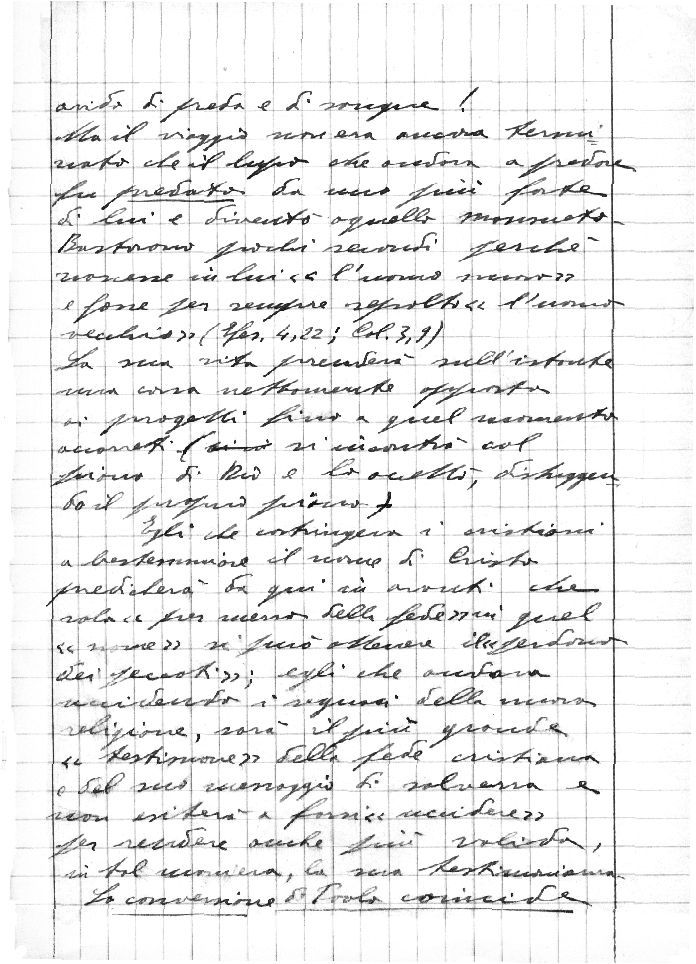 avido di preda e di sangue !
Ma il viaggio non era ancora termi=
nato che il lupo che andava a predare
fu predato da uno più forte
di lui e diventò agnello mansueto.
Bastarono pochi secondi perchè
nascesse in lui «l'uomo nuovo»
e fosse per sempre sepolto «l'uomo
vecchio» (Efes. 4,22; Col. 3,9)
La sua vita prenderà sull'istante
una corsa nettamente opposta
ai progetti fino a quel momento
accarezzati ( si incontrò col
piano di Dio e lo accettò, distruggen=
do il proprio piano)
Egli che costringeva i cristiani
a bestemmiare il nome di Cristo
predicherà da qui in avanti che
solo «per mezzo della fede» in quel
«nome» si può ottenere il «perdono
dei peccati»; egli che andava
uccidendo i seguaci della nuova
religione, sarà il più grande
«testimone» della fede cristiana
e del suo messaggio di salvezza e
non esiterà a farsi «uccidere»
per rendere anche più valida,
in tal maniera, la sua testimonianza.
La conversione di Paolo coincide